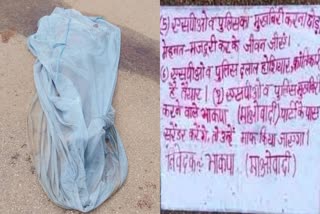 5) एसपीओ व पुलिस का मुखबिरी करना छोड़
मेहनत-मजदूरी कर के जीवन जीएं।
6) एसपीओ व पुलिस दलाल होशियार, क्रांतिकारी
हैं तैयार। 7) एसपीओ व पुलिस मुखबिरी
करने वाले भाकपा (माओवादी) पार्टी के पास
सरेंडर करेंगे, तो उन्हें माफ किया जाएगा।
निवेदक:- भाकपा (माओवादी)